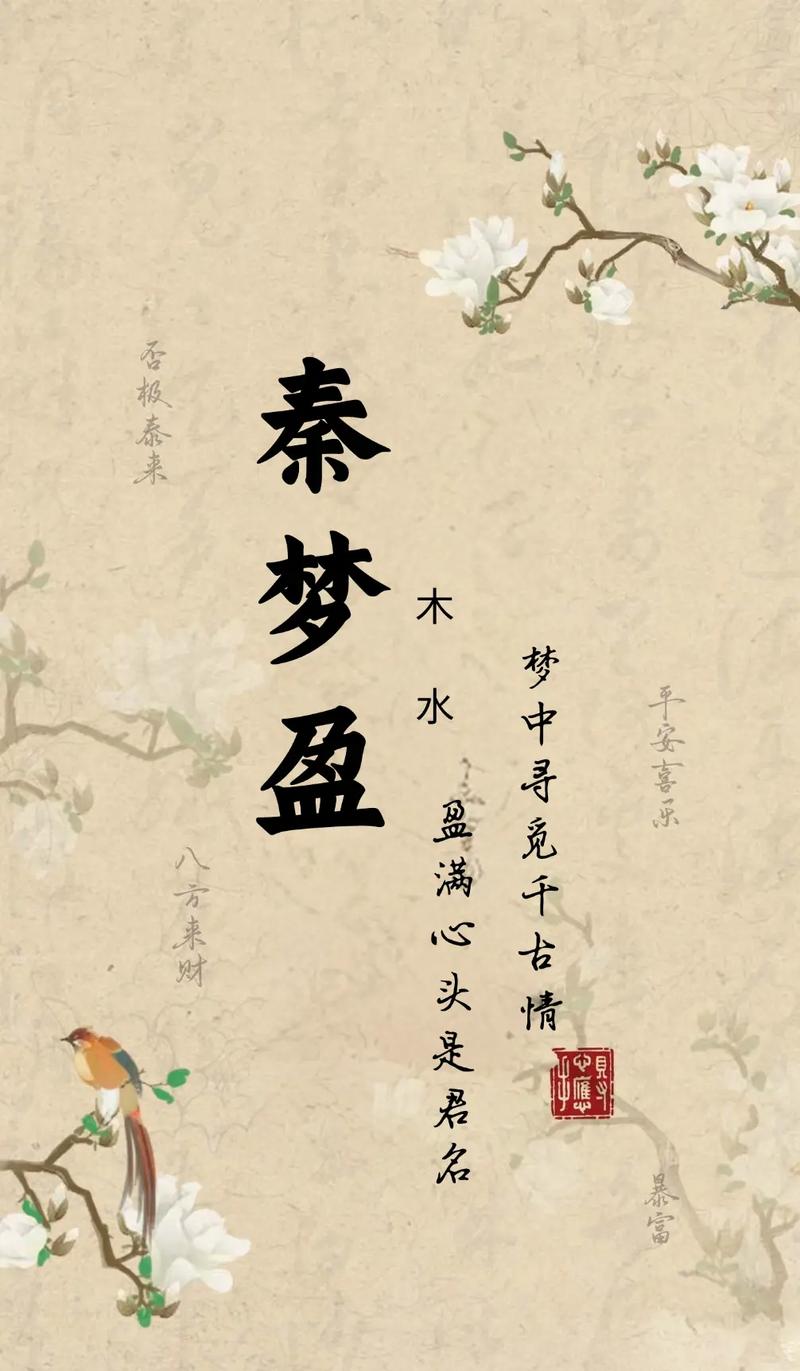 秦梦盈
木水
梦中寻觅千古情
盈满心头是君名
否极泰来
平安喜乐
八方来财
暴富